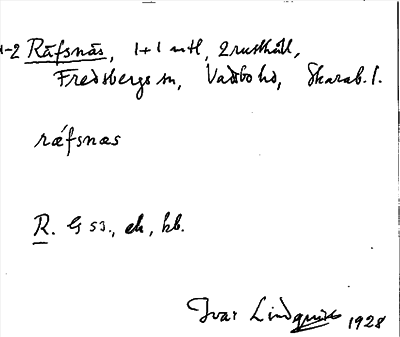 1-2 Räfsnäs, 1+1 mtl, 2 rusthåll,
Fredsbergs sn, Vadsbo hd, Skarab. l.
rǽfsnæs
R. G ss., ek, kb.
Ivar Lindquist 1928